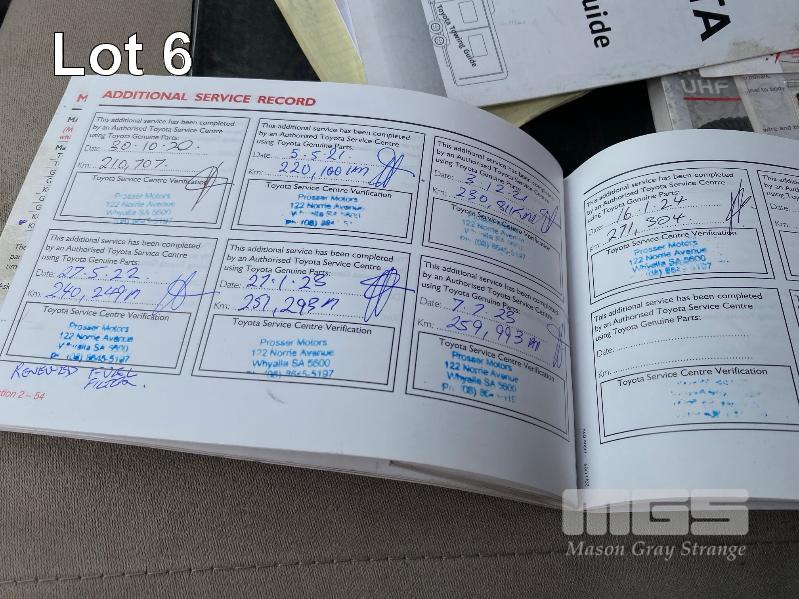 Lot 6
Toyota Towing Guide
uide
TA
UHF
M
ADDITIONAL SERVICE RECORD
This additional service has been completed
by an Authorised Toyota Service Centre
using Toyota Genuine Parts:
Date: 30.10.20.
Km: 210,707.
Toyota Service Centre Verification
Prosser Motors
122 Norrie Avenue
Whyalla SA 5600
This additional service has been completed
by an Authorised Toyota Service Centre
using Toyota Genuine Parts:
Date: 5.5.21.
Km: 220,100 km
Toyota Service Centre Verification
Prosser Motors
122 Norrie Avenue
Whyalla SA 5600
This additional service has been
by an Authorised Toyota Service
using Toyota Genuine Parts:
Date: 3.12.21
Km:
Toyota Service Centre Verification
Whyalla SA 5600
This additional service has been completed
by an Authorised Toyota Service Centre
using Toyota Genuine Parts:
Date: 27.5.22
Km:
Toyota Service Centre Verification
Prosser Motors
122 Norrie Avenue
Whyalla SA 5600
Ph: (08) 8645-5197
RENEWED FUEL
FILTER.
This additional service has been completed
by an Authorised Toyota Service Centre
using Toyota Genuine Parts:
Date: 27.1.23
Km:
Toyota Service Centre Verification
Prosser Motors
122 Norrie Avenue
Whyalla SA 5600
(08) 8645-5197
This additional service has been completed
by an Authorised Toyota Service Centre
using Toyota Genuine Parts:
Date: 7.7.23
Km: 259,993
Toyota Service Centre Verification
Prosser Motors
122 Norrie Avenue
Whyalla SA 5600
tion 2 – 54
This additional service has been completed
by an Authorised Toyota Service Centre
using Toyota Genuine Parts:
Date: 16.1.24
Km: 271,304
Toyota Service Centre Verification
Prosser Motors
122 Norrie Avenue
Whyalla SA 5600
This additional service has been completed
by an Authorised Toyota Service Centre
using Toyota Genuine Parts:
Date:
Km:
Toyota Service Centre Verification
MGS
Mason Gray Strange